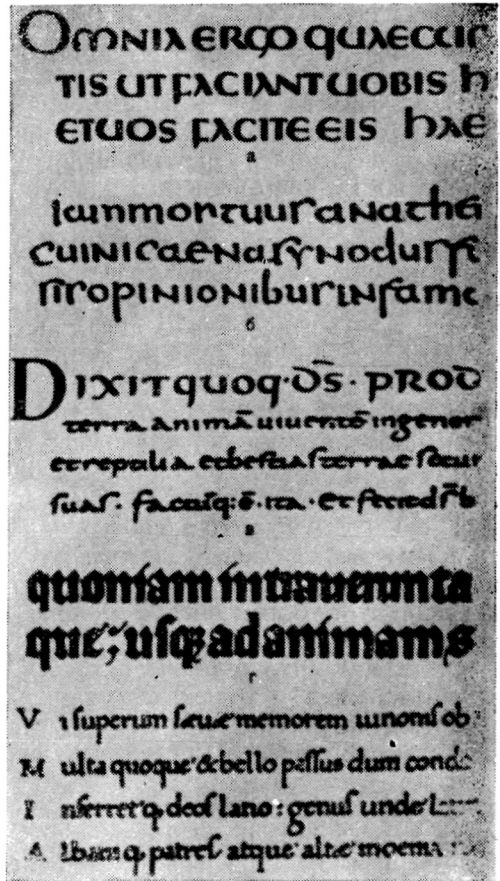 OMNIA ERGO QUAECU
TIS UT FACIANT UOBIS h
ET UOS FACITE EIS hAE
а
mortuus anathe
cuini caena synodus si
opinionibus infame
б
DIXIT quoq· d̄s · PROD
terra animā uiuentē in gener
et reptilia et bestias terrae secun
suas · factūq: ē · ita · et fecit d̄s b
в
quoniam intrauerunt a
que; usq; ad animam s
г
V i superum sęuę memorem iunonis ob
M ulta quoque & bello passus dum conde
I nferretq deos latio: genus unde
A lbaniq patres atque altę moenia